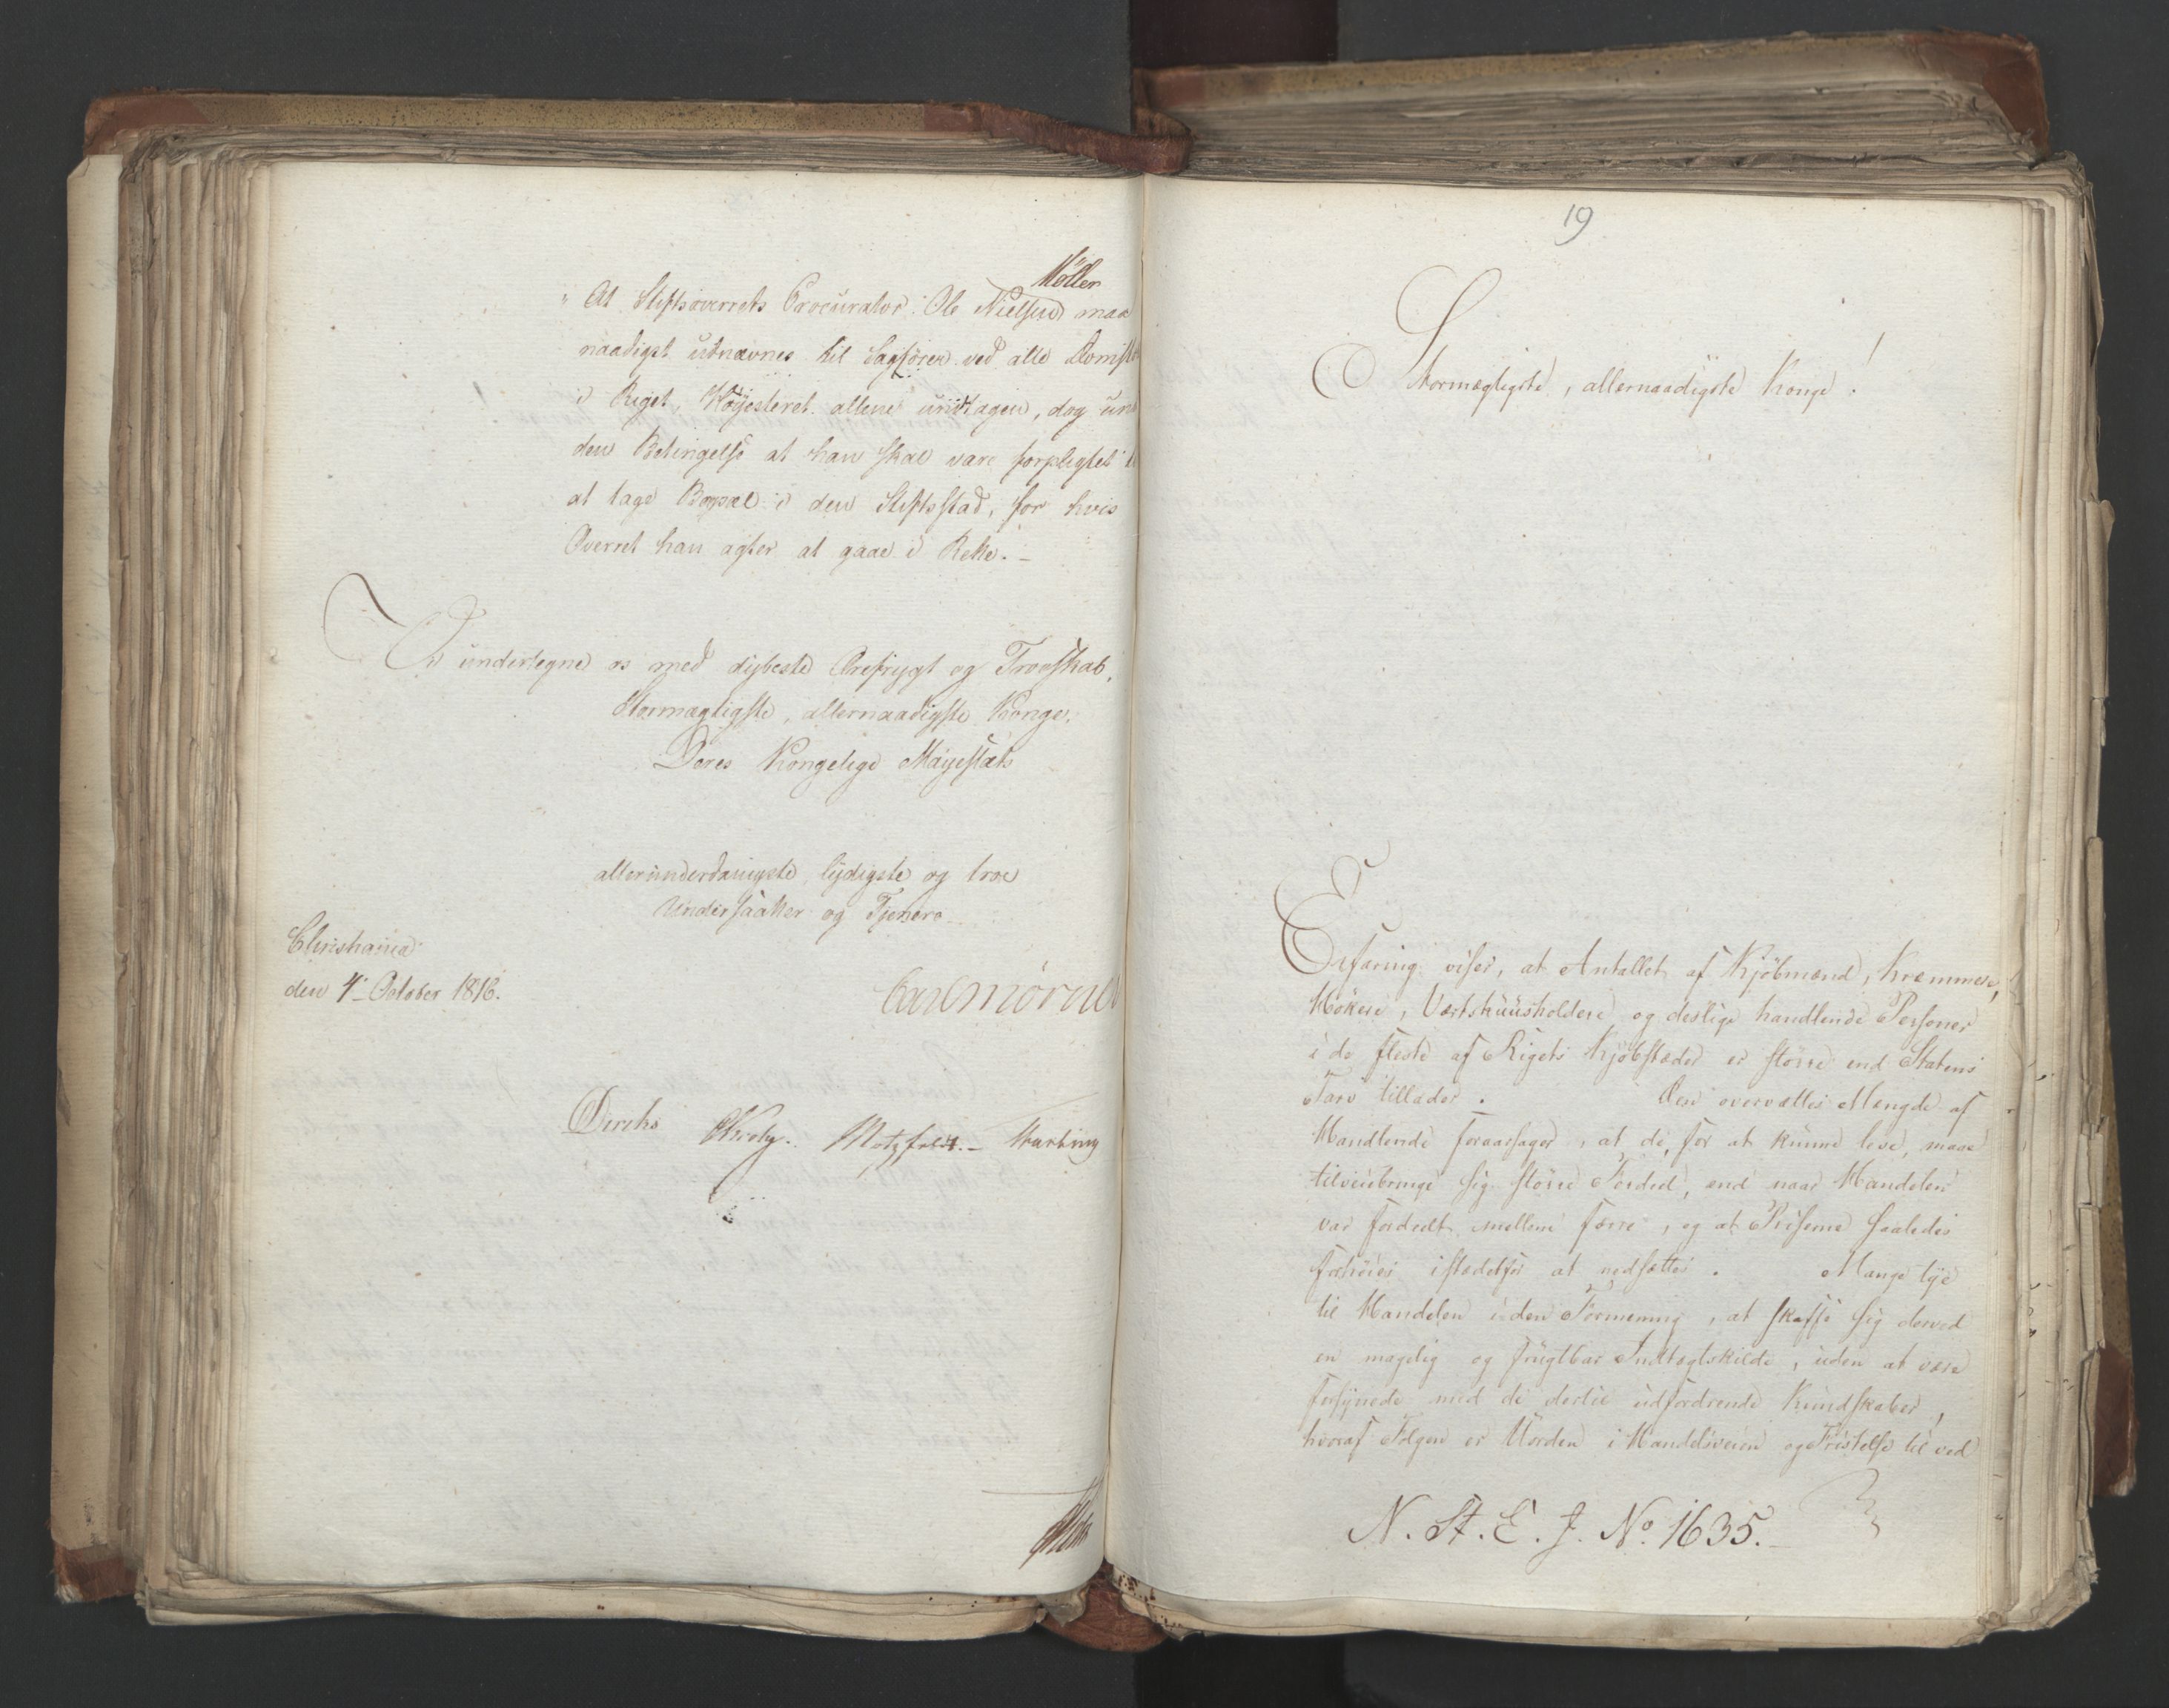 Möller
"At Stiftsoverrets Procurator Ole Nielsen maa
naadigst udnævnes til Sagförer ved alle Domst
i Riget, Höyesteret allene undtagen, dog un
den Betingelse at han skal være forpligtet
at tage Bopæl i den Stiftsstad, for hvis
Overret han agter at gaae i Rette. -
Vi undertegne os med dybeste Ærefrygt og Troeskab,
Stormægtigste, allernaadigste Konge,
Deres Kongelige Mayestæts
allerunderdanigste, lydigste og troe
Undersaatter og Tjenere
Christiania
den 4de October 1816.
Carl Mörner
Diriks Krohg. Motzfeldt. - Harbing
19
Stormægtigste, allernaadigste Konge!
Erfaring viser, at Antallet af Kjöbmænd, Kræmmere,
Hökere, Værtshuusholdere og deslige handlende Personer
i de fleste af Rigets Kjöbstæder er större end Statens
Tarv tillader. Den overvættes Mængde af
Handlende foraarsager, at de, for at kunne leve, maae
tilveiebringe sig större Fordeel, end naar Handelen
var fordeelt mellem færre, og at Priserne saaledes
forhöies istædetfor at nedsættes. Mange tye
til Handelen i den Formening, at skaffe sig derved
en magelig og frugtbar Indtægtskilde, uden at være
forsynede med de dertil udfordrende Kundskaber,
hvoraf Fölgen er Uorden i Handelsveien og Fristelse til ved
N. St. E. J. No. 1635. -